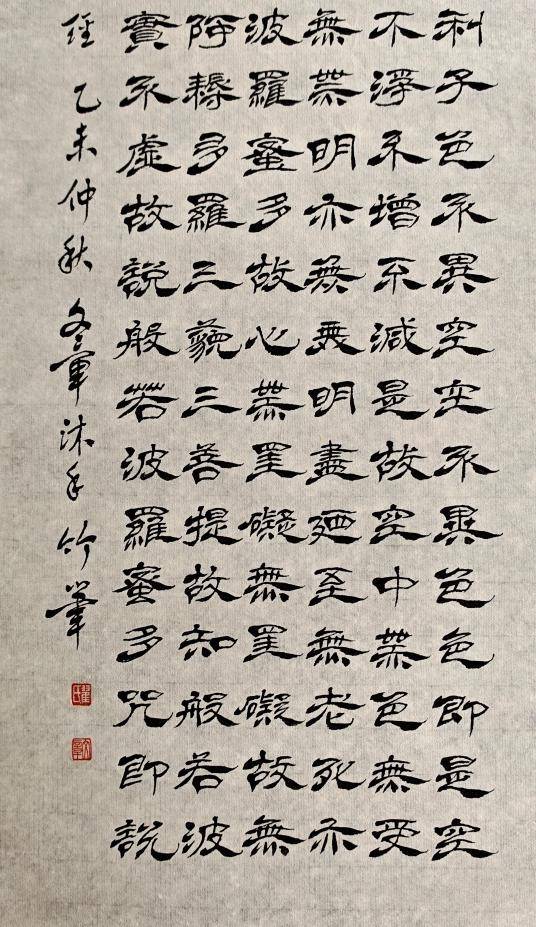 利子色不異空空不異色色即是空
不淨不增不減是故空中無色無受
無無明亦無無明盡廼至無老死亦
波羅蜜多故心無罣礙無罣礙故無
阿耨多羅三藐三菩提故知般若波
實不虛故說般若波羅蜜多咒即說
經 乙未仲秋 冬軍沐手 竹筆